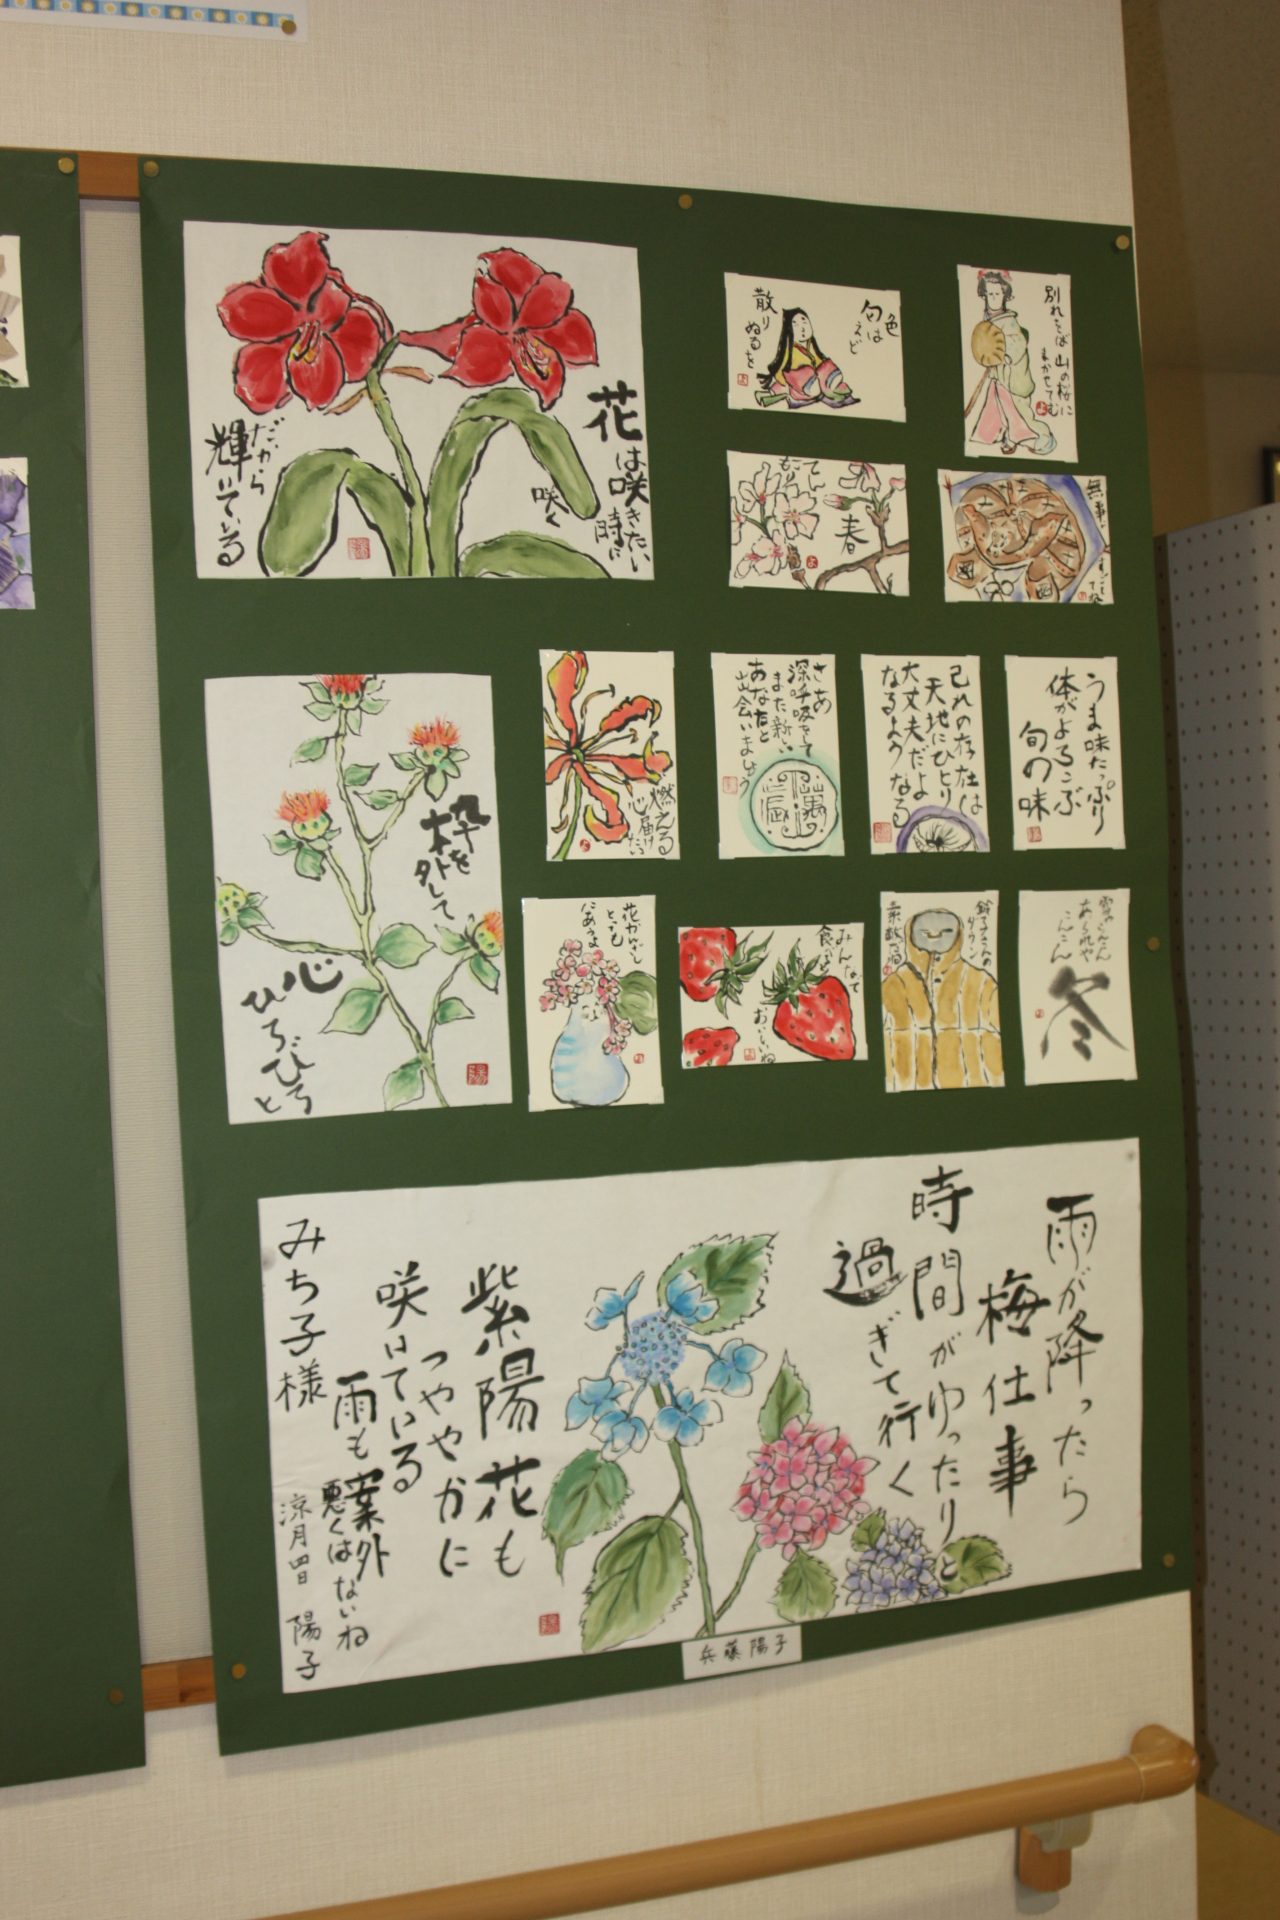 花は咲きたい
時に
咲く
だから
輝いている
色
匂は
えど
散り
ぬるを
別れをば
山の桜に
まかせてむ
春
無事に
枠を
外して
心
ひろびろ
と
燃える
心届けたい
さあ
深呼吸をして
また新しい
あなたと
出会いましょう
己れの存在は
天地にひとり
大丈夫だよ
なるようになる
うま味たっぷり
体がよろこぶ
旬の味
花かんざし
とても
にあうよ
みんなで
食べると
おいしいね
雪やこんこん
あられや
こんこん
冬
雨が降ったら
梅仕事
時間がゆったりと
過ぎて行く
紫陽花も
つややかに
咲いている
雨も案外
悪くはないね
みち子様
涼月四日 陽子
兵藤陽子